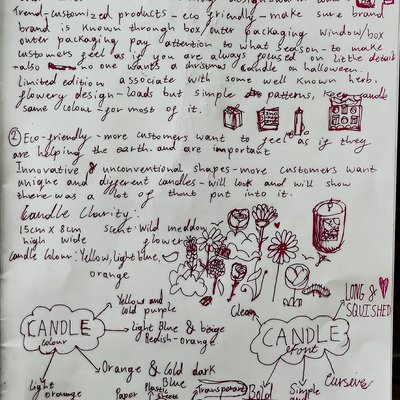 trend-customized products - eco friendly - make sure brand
brand is known through box/outer packaging window/box
outer packaging pay attention to what season - to make
customers feel as if you are always focused on little detail
- also no one wants a christmas candle on halloween.
limited edition associate with some well known herb.
flowery design - loads but simple patterns, keep candle
same colour for most of it.
② Eco-friendly - more customers want to feel as if they
are helping the earth and are important
Innovative & unconventional shapes - more customers want
unique and different candles - will look and will show
there was a lot of thout put into it.
Candle Clarity:
15cm x 8cm scent: Wild meddow
high wide flowers
Candle Colour: Yellow, light blue,
orange
Yellow and
cold purple
Clean
LONG &
SQUISHED
CANDLE
colour
Light Blue & beige
Redish-orange
CANDLE
font
Orange & Cold dark
Blue
Cursive
Light
orange
Paper
Plastic
sheets
Transparent
Bold
Simple